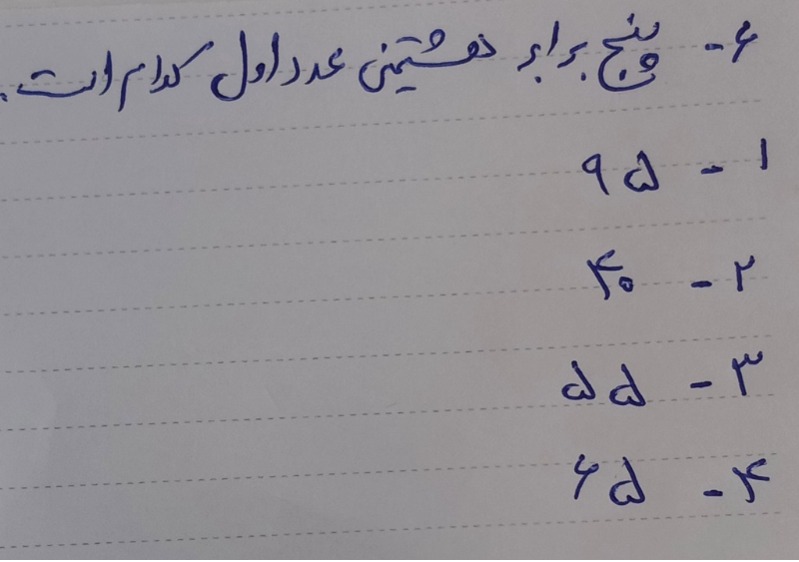 ۶- پنج برابر هشتمین عدد اول کدام است.
۱ - ۹۵
۲ - ۴۰
۳ - ۵۵
۴ - ۶۵